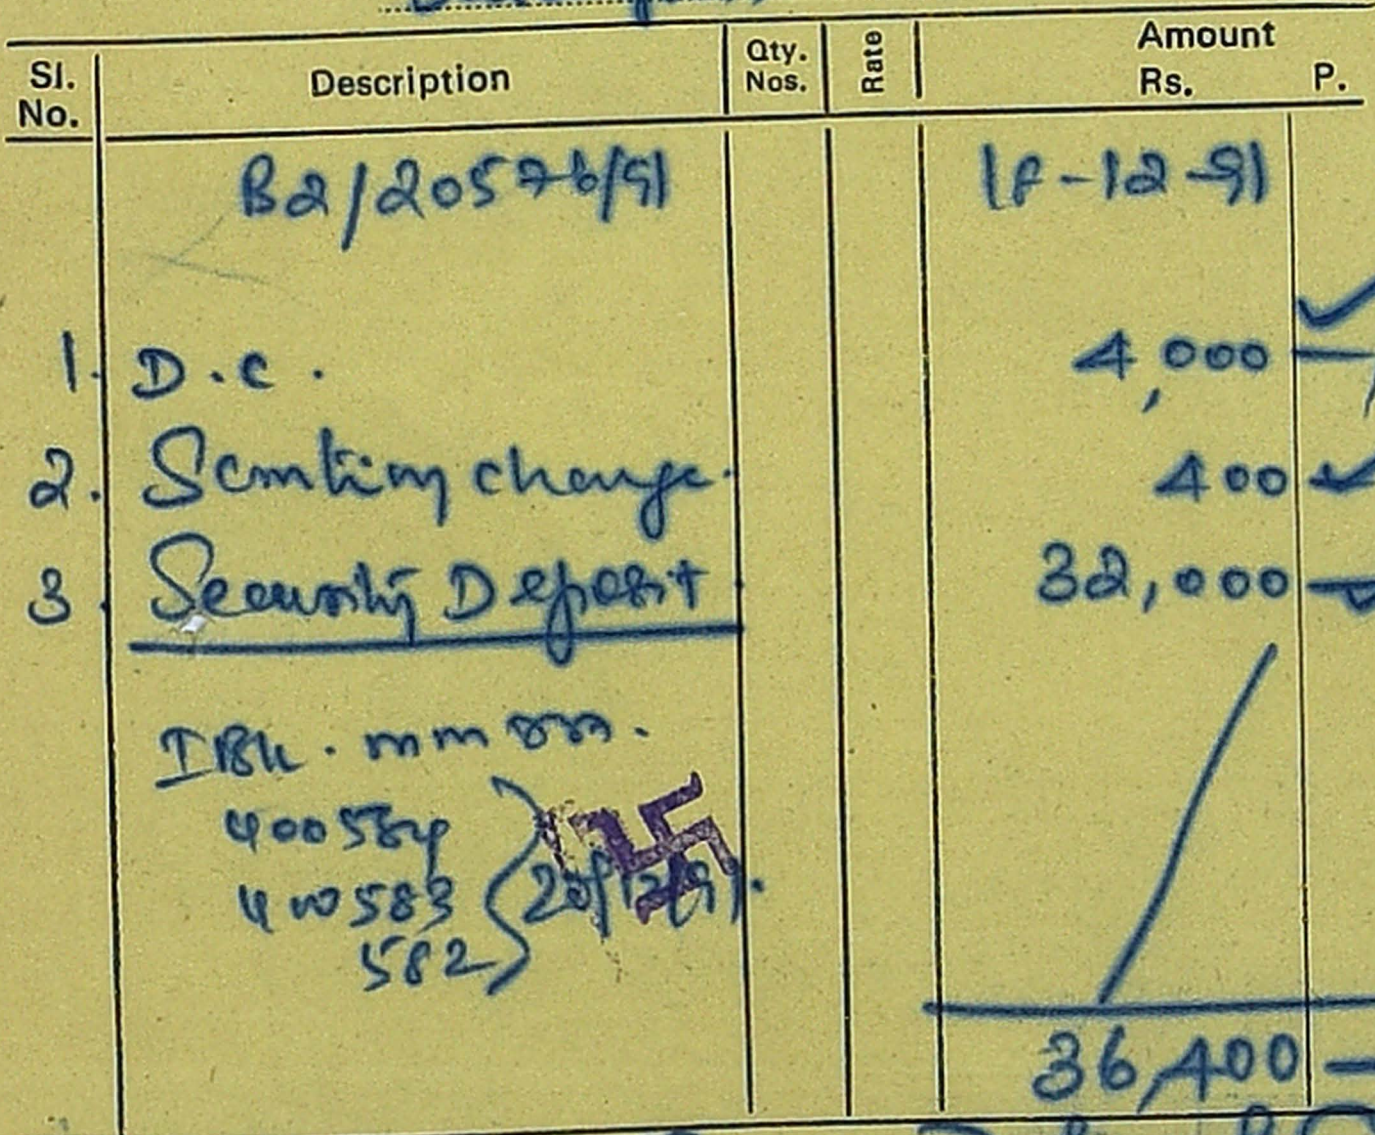 Sl. No. Description Qty. Nos. Rate Amount Rs. P.
B2/20576/91 18-12-91
1. D.C. 4,000 —
2. Scrutiny charge. 400
3. Security Deposit 32,000 —
IBK.
400584
400583 20/12/91.
582
36,400 —